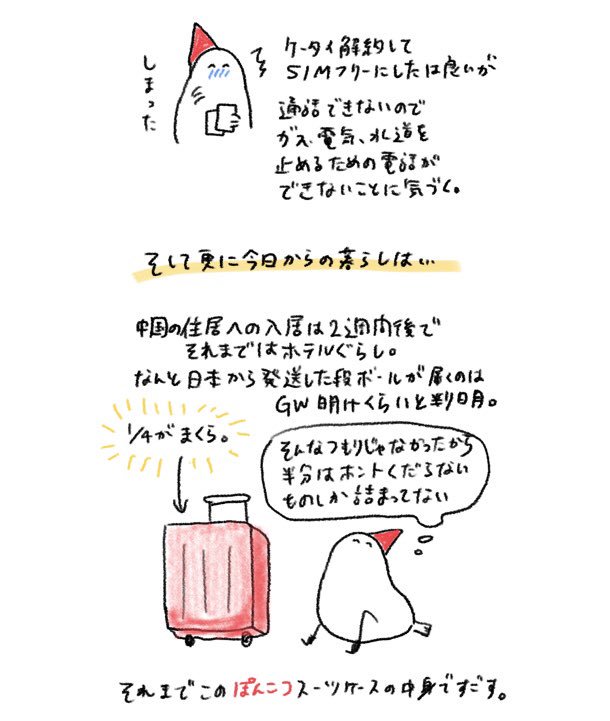 ケータイ解約して
SIMフリーにしたは良いが
しまった
通話できないので
ガス、電気、水道を
止めるための電話が
できないことに気づく。
そして更に今日からの暮らしは…
中国の住居への入居は2週間後で
それまではホテルぐらし。
なんと日本から発送した段ボールが届くのは
GW明けくらいと判明。
1/4がまくら。
そんなつもりじゃなかったから
半分はホントくだらない
ものしか詰まってない
それまでこのぽんこつスーツケースの中身ですごす。